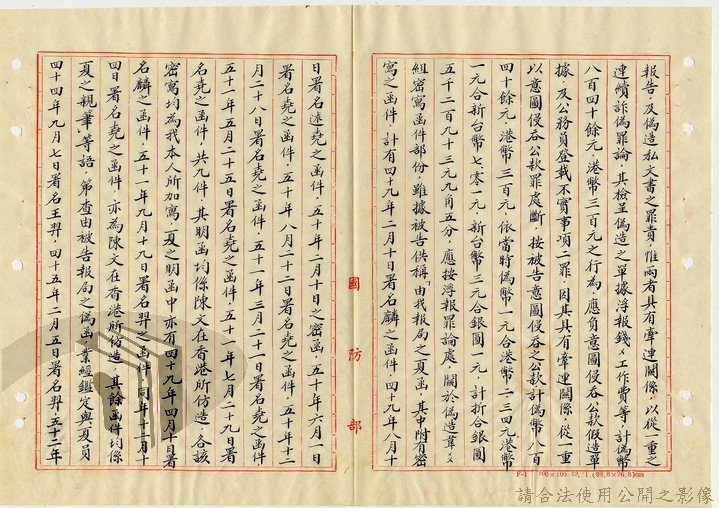 報告及偽造私文書之罪責，惟兩者具有牽連關係，以從一重之
連續詐偽罪論，其檢呈偽造之單據浮報錢××工作費等，計偽幣
八百四十餘元，港幣三百元之行為，應負意圖侵吞公款假造單
據，及公務員登載不實事項二罪，因其具有牽連關係，從一重
以意圖侵吞公款罪處斷，按被告意圖侵吞之公款計偽幣八百
四十餘元，港幣三百元，依當時偽幣一元合港幣二．三四元，港幣
一元合新台幣七．零一元，新台幣三元合銀圓一元，計折合銀圓
五千二百九十三元九角五分，應按浮報罪論處，關於偽造葉××
組密寫函件部份，雖據被告供稱「由我報局之夏函，其中附有密
寫之函件，計有四十九年二月十日署名麟之函件，四十九年八月十
國防部
日署名述堯之函件，五十年二月十日之密函，五十年六月一日
署名堯之函件，五十年八月二十二日署名堯之函件，五十年十二
月二十八日署名堯之函件，五十一年三月二十一日署名堯之函件
五十一年五月二十五日署名堯之函件，五十一年七月二十九日署
名堯之函件，共九件，其明函均係陳文在香港所仿造，各該
密寫均為我本人所加寫，夏之明函中亦有四十九年四月十日署
名麟之函件，五十一年九月十九日署名羿之函件，同年十二月十
四日署名堯之函件，亦為陳文在香港所仿造，其餘函件均係
夏之親筆」等語，第查由被告報局之偽函業經鑑定與夏員
四十四年九月七日署名王羿，四十五年二月五日署名羿，五十二年
請合法使用公開之影像